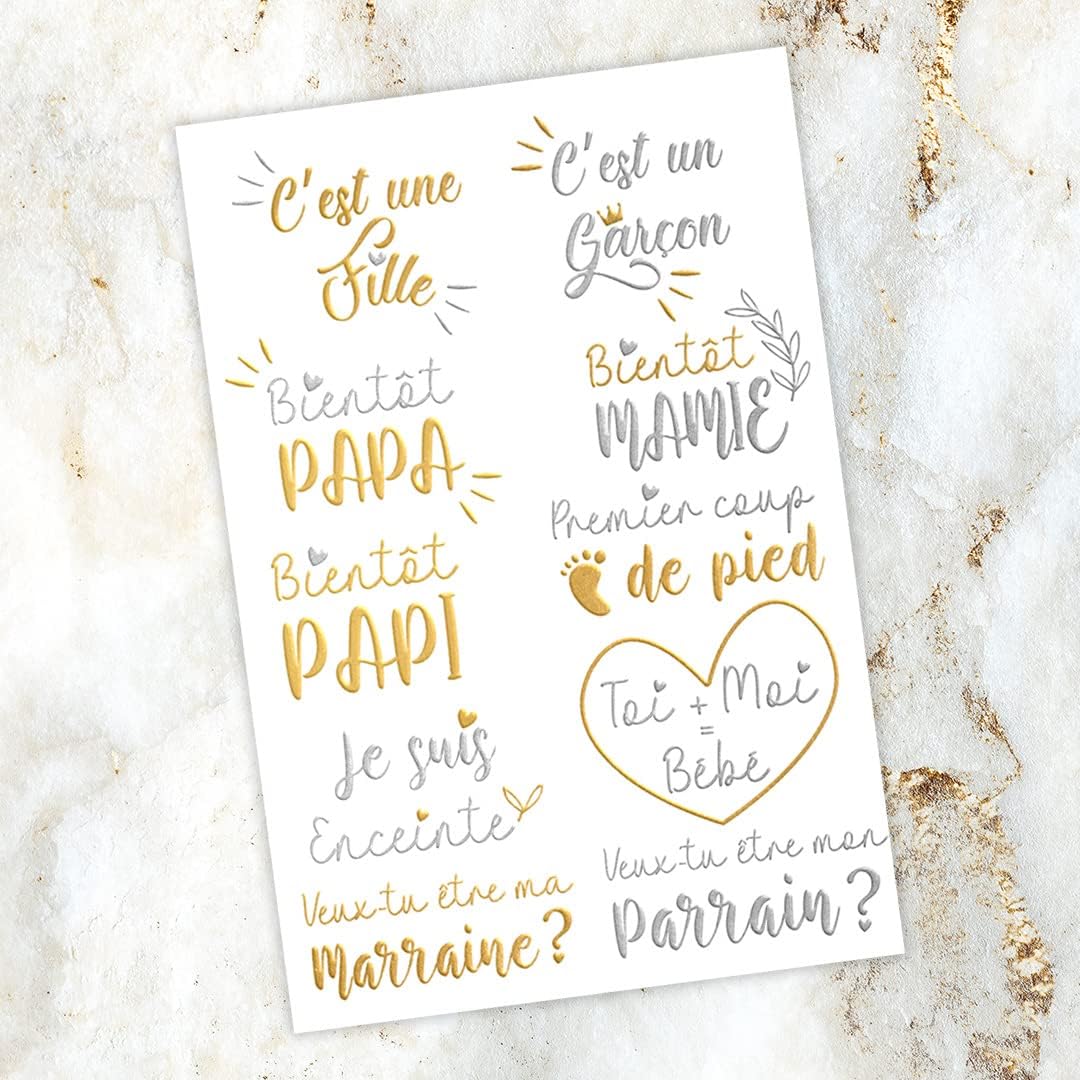 C'est une
Fille
C'est un
Garçon
Bientôt
PAPA
Bientôt
MAMIE
Bientôt
PAPI
Premier coup
de pied
Toi + Moi
=
Bébé
Je suis
Enceinte
Veux-tu être ma
Marraine ?
Veux-tu être mon
Parrain ?